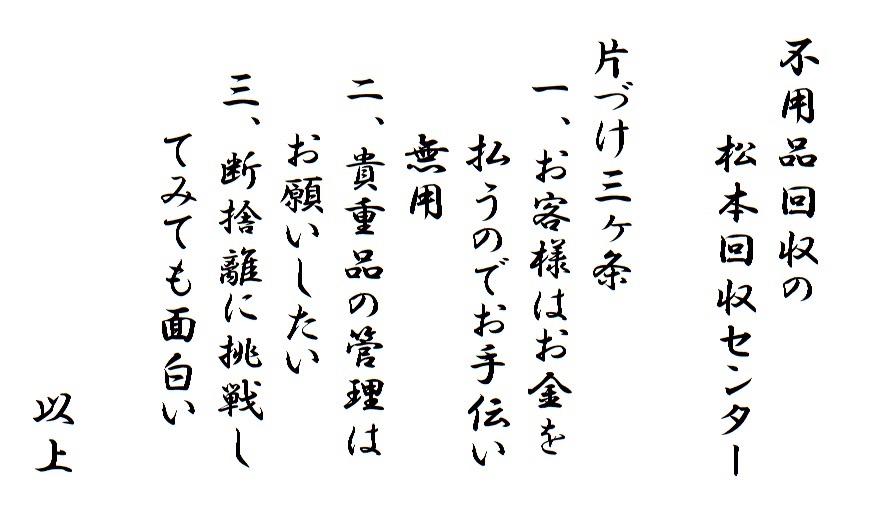 不用品回収の
松本回収センター
片づけ三ヶ条
一、お客様はお金を
払うのでお手伝い
無用
二、貴重品の管理は
お願いしたい
三、断捨離に挑戦し
てみても面白い
以上